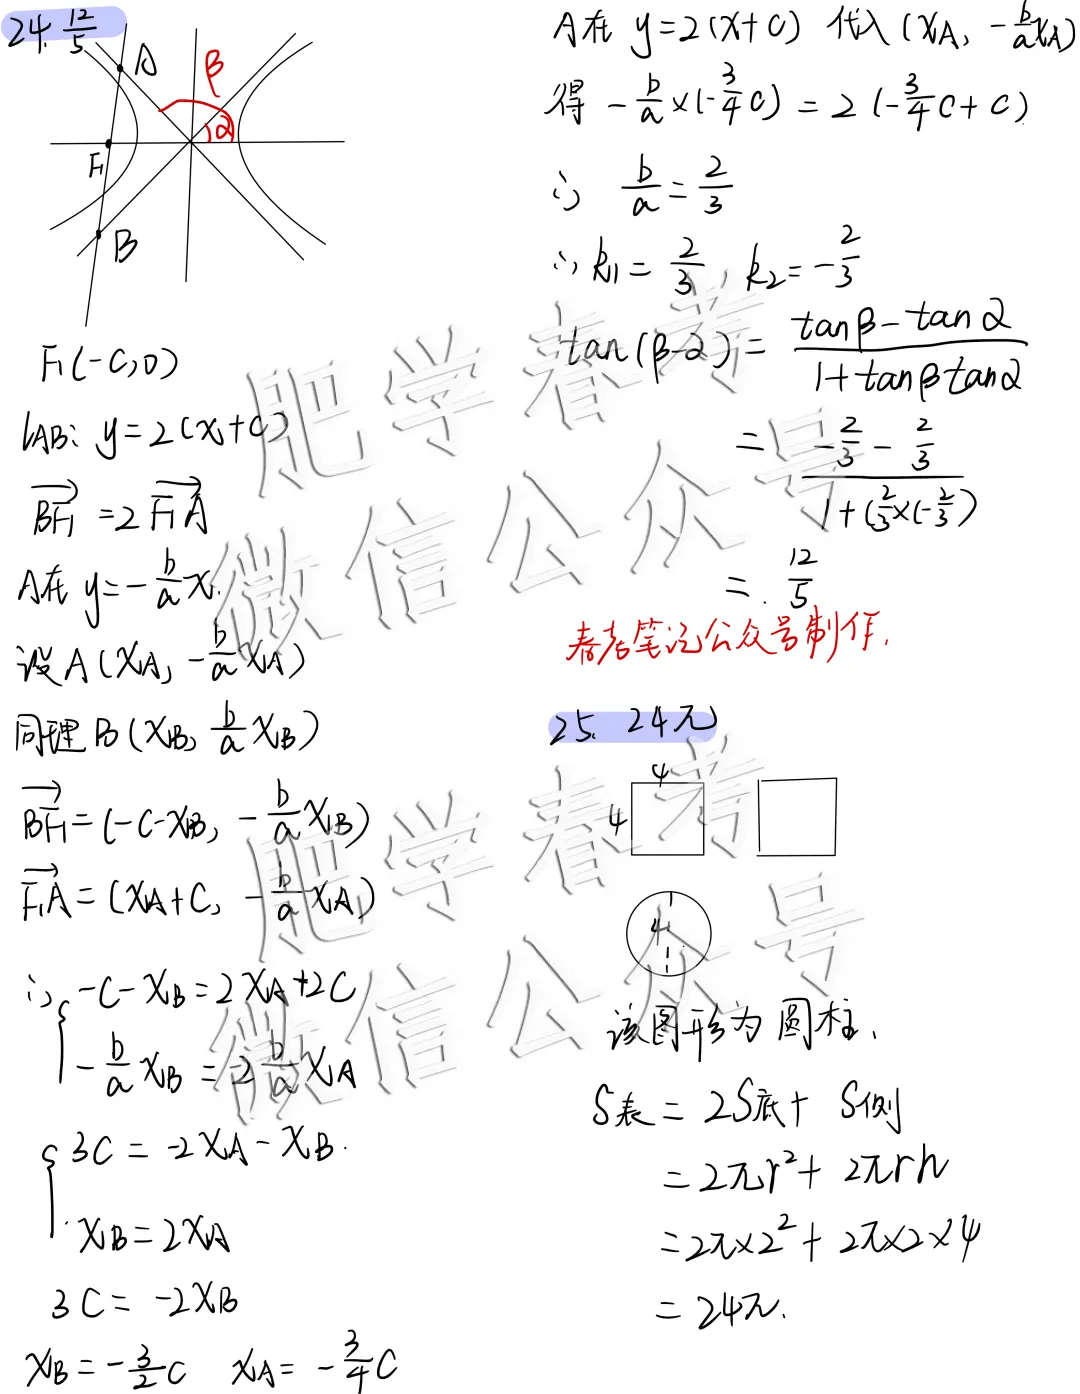 24. 12/5
A
β
α
F₁
B
F₁(-c,0)
l_AB: y=2(x+c)
BF₁→ =2 F₁A→
A在 y=-b/a x.
设A(x_A, -b/a x_A)
同理B(x_B, b/a x_B)
BF₁→=(-c-x_B, -b/a x_B)
F₁A→=(x_A+c, -b/a x_A)
∴ { -c-x_B=2x_A+2c
-b/a x_B=-2 b/a x_A
{ 3c=-2x_A-x_B.
x_B=2x_A
3c=-2x_B
x_B=-3/2 c x_A=-3/4 c
A在 y=2(x+c) 代入(x_A, -b/a x_A)
得 -b/a×(-3/4 c)=2(-3/4 c+c)
∴ b/a=2/3
∴ k₁=2/3 k₂=-2/3
tan(β-α)= (tanβ-tanα)/(1+tanβtanα)
= (-2/3-2/3)/(1+(2/3×(-2/3))
=. 12/5
春考笔记公众号制作.
25. 24π
4
4
4
该图形为圆柱.
S表=2S底+S侧
=2πr²+2πrh
=2π×2²+2π×2×4
=24π.
肥学春考
微信公众号
肥学春考
微信公众号